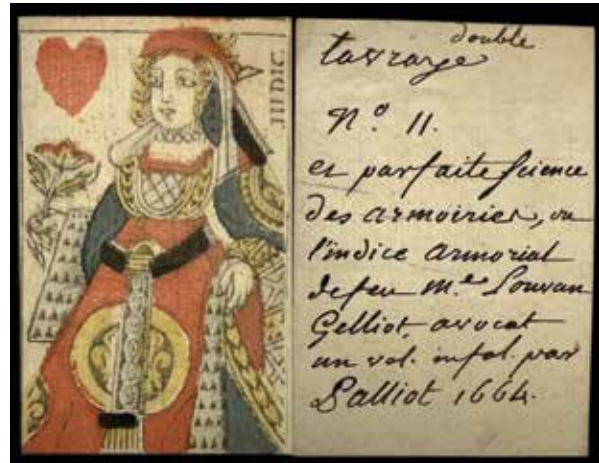 IUDIC
double
Lavraye
N.º 11.
et parfaite science
des armoiries, ou
l'indice armorial
defeu M.e Louvan
Gelliot, avocat
un vol. infol. par
Palliot 1664.